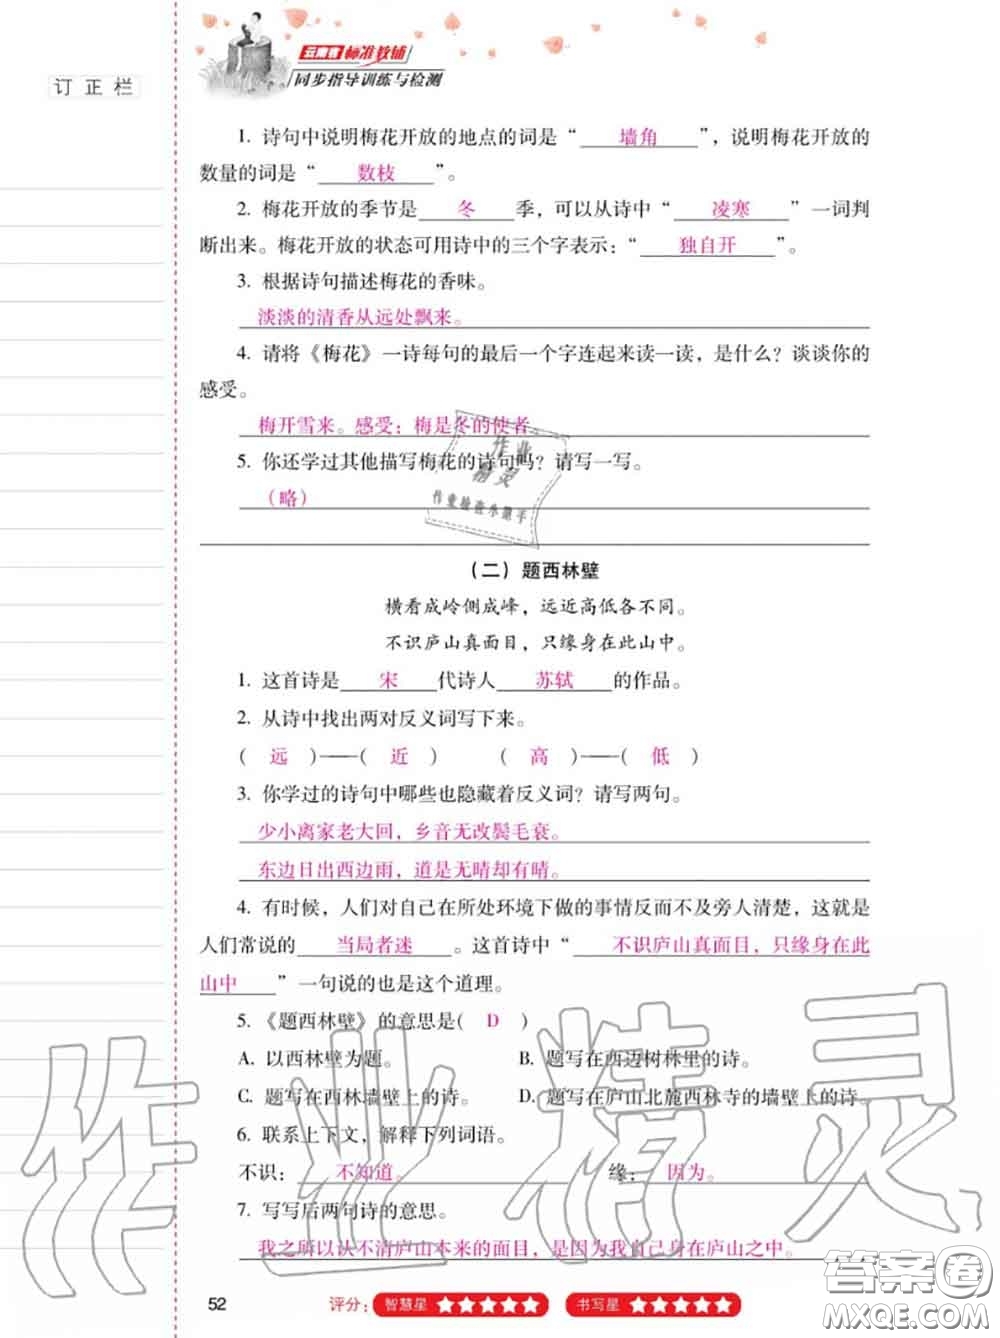 云南省标准教辅
同步指导训练与检测
订正栏
1. 诗句中说明梅花开放的地点的词是“ 墙角 ”，说明梅花开放的
数量的词是“ 数枝 ”。
2. 梅花开放的季节是 冬 季，可以从诗中“ 凌寒 ”一词判
断出来。梅花开放的状态可用诗中的三个字表示：“ 独自开 ”。
3. 根据诗句描述梅花的香味。
淡淡的清香从远处飘来。
4. 请将《梅花》一诗每句的最后一个字连起来读一读，是什么？谈谈你的
感受。
梅开雪来。感受：梅是冬的使者。
5. 你还学过其他描写梅花的诗句吗？请写一写。
（略）
作业
精灵
作业检查小能手
（二）题西林壁
横看成岭侧成峰，远近高低各不同。
不识庐山真面目，只缘身在此山中。
1. 这首诗是 宋 代诗人 苏轼 的作品。
2. 从诗中找出两对反义词写下来。
（ 远 ）——（ 近 ） （ 高 ）——（ 低 ）
3. 你学过的诗句中哪些也隐藏着反义词？请写两句。
少小离家老大回，乡音无改鬓毛衰。
东边日出西边雨，道是无晴却有晴。
4. 有时候，人们对自己在所处环境下做的事情反而不及旁人清楚，这就是
人们常说的 当局者迷 。这首诗中“ 不识庐山真面目，只缘身在此
山中 ”一句说的也是这个道理。
5.《题西林壁》的意思是( D )
A. 以西林壁为题。 B. 题写在西边树林里的诗。
C. 题写在西林墙壁上的诗。 D. 题写在庐山北麓西林寺的墙壁上的诗。
6. 联系上下文，解释下列词语。
不识： 不知道。 缘： 因为。
7. 写写后两句诗的意思。
我之所以认不清庐山本来的面目，是因为我自己身在庐山之中。
作业精灵
52 评分： 智慧星 ★★★★★ 书写星 ★★★★★
答案圈
MXQE.COM